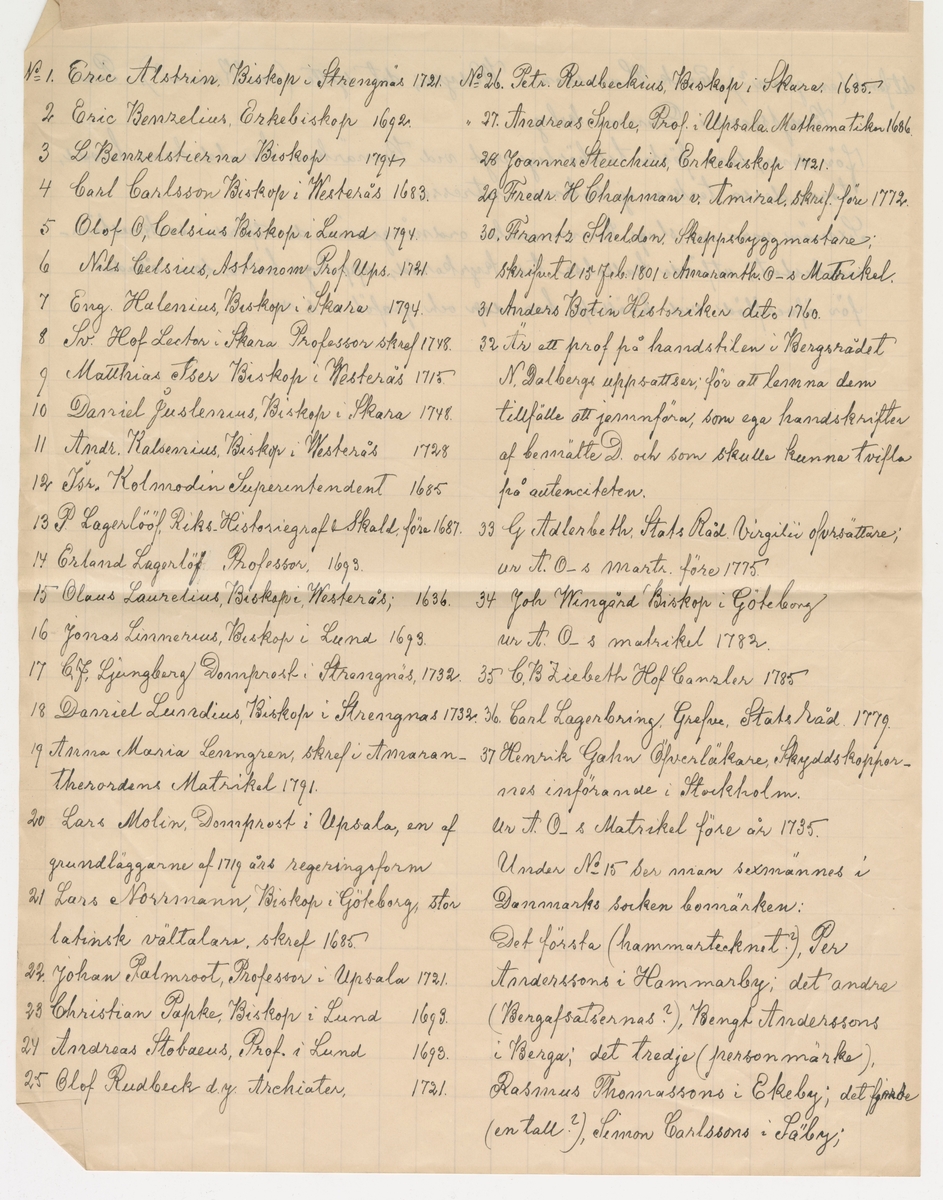 No 1. Eric Alstrin, Biskop i Strengnäs 1721.
2 Eric Benzelius, Erkebiskop 1692.
3 L Benzelstierna Biskop 1794
4 Carl Carlsson Biskop i Westerås 1683.
5 Olof O, Celsius Biskop i Lund 1794.
6 Nils Celsius, Astronom Prof. Ups. 1721.
7 Eng. Halenius, Biskop i Skara 1794.
8 Sv. Hof Lector i Skara Professor skref 1748.
9 Matthias Iser Biskop i Westerås 1715
10 Daniel Juslenius, Biskop i Skara 1748.
11 Andr. Kalsenius, Biskop i Westerås 1728
12 Isr. Kolmodin Superintendent 1685
13 P. Lagerlööf, Riks-Historiegraf & Skald, före 1687.
14 Erland Lagerlöf Professor, 1693.
15 Olaus Laurelius, Biskop i Westerås; 1636.
16 Jonas Linnerius, Biskop i Lund 1693.
17 C.F. Ljungberg Domprost i Strengnäs, 1732.
18 Daniel Lundius, Biskop i Strengnas 1732.
19 Anna Maria Lenngren, skref i Amaran-
therordens Matrikel 1791.
20 Lars Molin, Domprost i Upsala, en af
grundläggarne af 1719 års regeringsform
21 Lars Norrmann, Biskop i Göteborg, stor
latinsk vältalare, skref 1685
22. Johan Palmroot, Professor i Upsala 1721.
23 Christian Papke, Biskop i Lund 1693.
24 Andreas Stobaeus, Prof. i Lund 1693.
25 Olof Rudbeck d.y. Archiater, 1721.
No 26. Petr. Rudbeckius, Biskop i Skara. 1685.
" 27. Andreas Spole, Prof. i Upsala. Mathematiker 1686.
28 Joannes Steuchius, Erkebiskop 1721.
29 Fredr. H Chapman v. Amiral, skrif. före 1772.
30. Frantz Sheldon, Skeppsbyggmastare;
skrifvet d 15 Feb. 1801 i Amaranth. O-s Matrikel.
31 Anders Botin Historiker dito 1760.
32 Är ett prof på handstilen i Bergsrådet
N. Dalbergs uppsattser; för att lemna dem
tillfälle att jemnföra, som ega handskrifter
af bemälte D. och som skulle kunna tvifla
på autenciteten.
33 G Adlerbeth, Stats Råd. Virgilii öfversättare;
ur A. O-s martr. före 1775
34 Joh Wingård Biskop i Göteborg
ur A. O-s matrikel 1782.
35 C, B Ziebeth Hof Canzler 1785
36. Carl Lagerbring, Grefve, Stats Råd. 1779.
37 Henrik Gahn Öfverläkare, Skyddskoppor-
nes införande i Stockholm.
Ur A. O-s Matrikel före år 1735.
Under No 15 ser man sexmännes i
Danmarks socken bomärken:
Det första (hammartecknet?), Per
Anderssons i Hammarby; det andra
(Bergafsatsernas?), Bengt Anderssons
i Berga; det tredje (personmärke),
Rasmus Thomassons i Ekeby; det fjerde
(en tall?), Simon Carlssons i Säby;